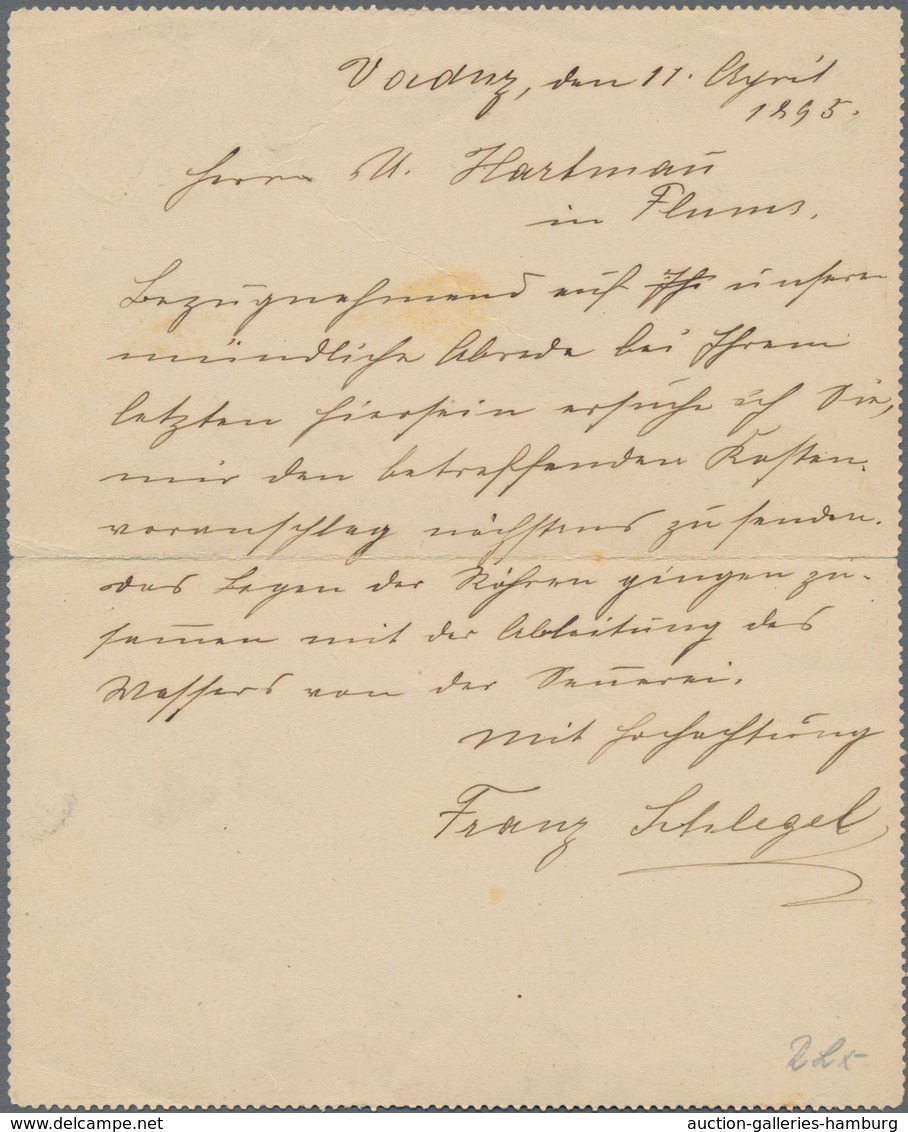 Vaduz, den 11. April
1895.
Herrn U. Hartman̄
in Flums.
Bezugnehmend auf Ihr unsere
mündliche Abrede bei Ihrem
letzten Hiersein ersuche ich Sie,
mir den betreffenden Kosten-
voranschlag nächstens zu senden.
Das Legen der Röhren gingen zu-
sam̄en mit der Ableitung des
Wassers von der Sen̄erei.
Mit Hochachtung
Franz Schlegel
www.delcampe.net
auction-galleries-hamburg